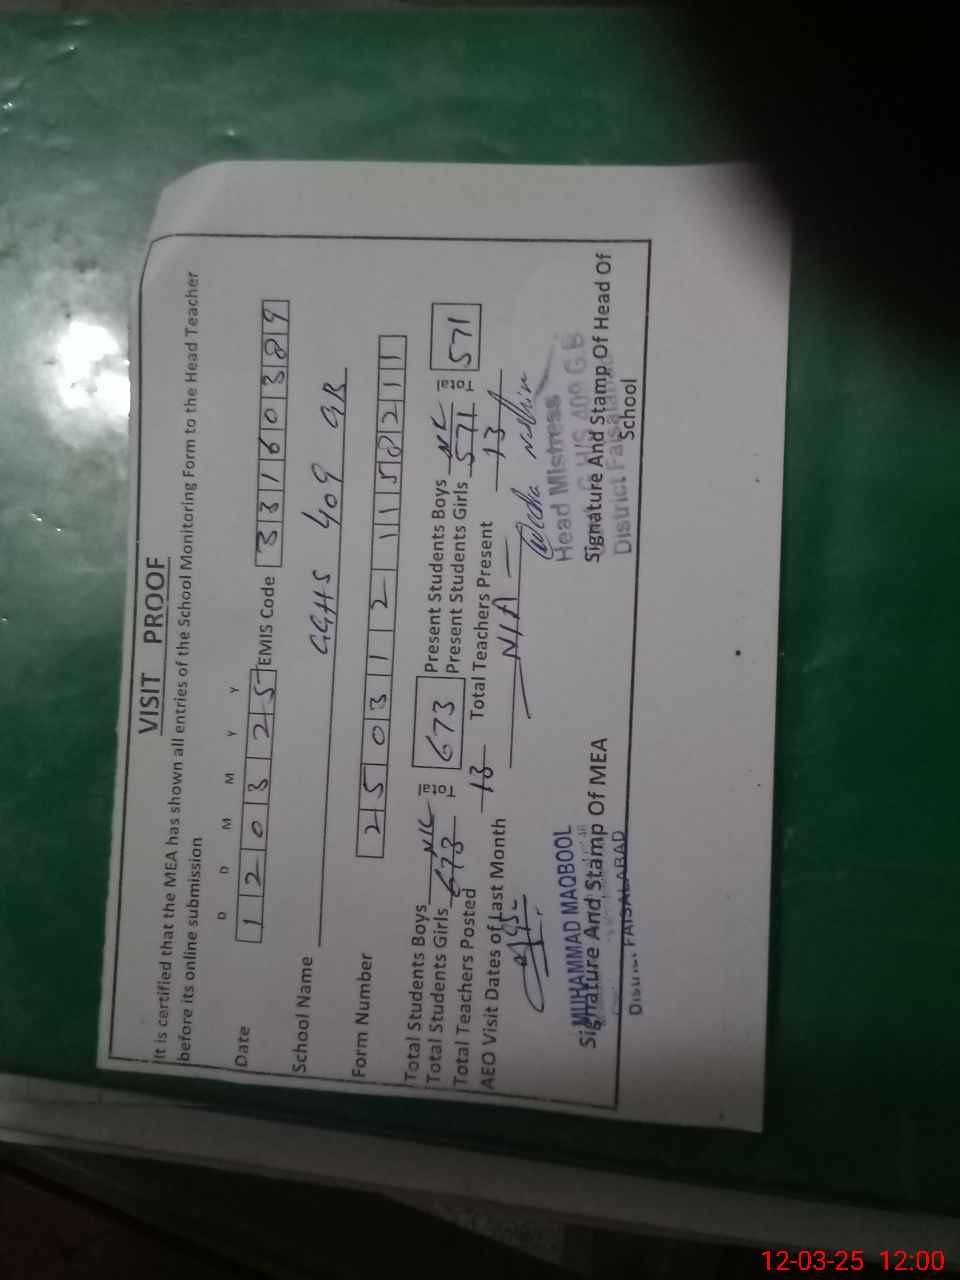 VISIT PROOF
It is certified that the MEA has shown all entries of the School Monitoring Form to the Head Teacher
before its online submission
D D M M Y Y
Date 1 2 0 3 2 5 EMIS Code 3 3 1 6 0 3 8 9
School Name GGHS 409 GB
Form Number 2 5 0 3 1 2 1 1 5 8 2 1 1
Total Students Boys NIL Total 673 Present Students Boys NIL Total 571
Total Students Girls 673 Present Students Girls 571
Total Teachers Posted 13 Total Teachers Present 13
AEO Visit Dates of Last Month N/A
MUHAMMAD MAQBOOL
Signature And Stamp Of MEA
District FAISALABAD
Head Mistress
G.G.H/S 409 G.B
Signature And Stamp Of Head Of
School
District Faisalabad
12-03-25 12:00